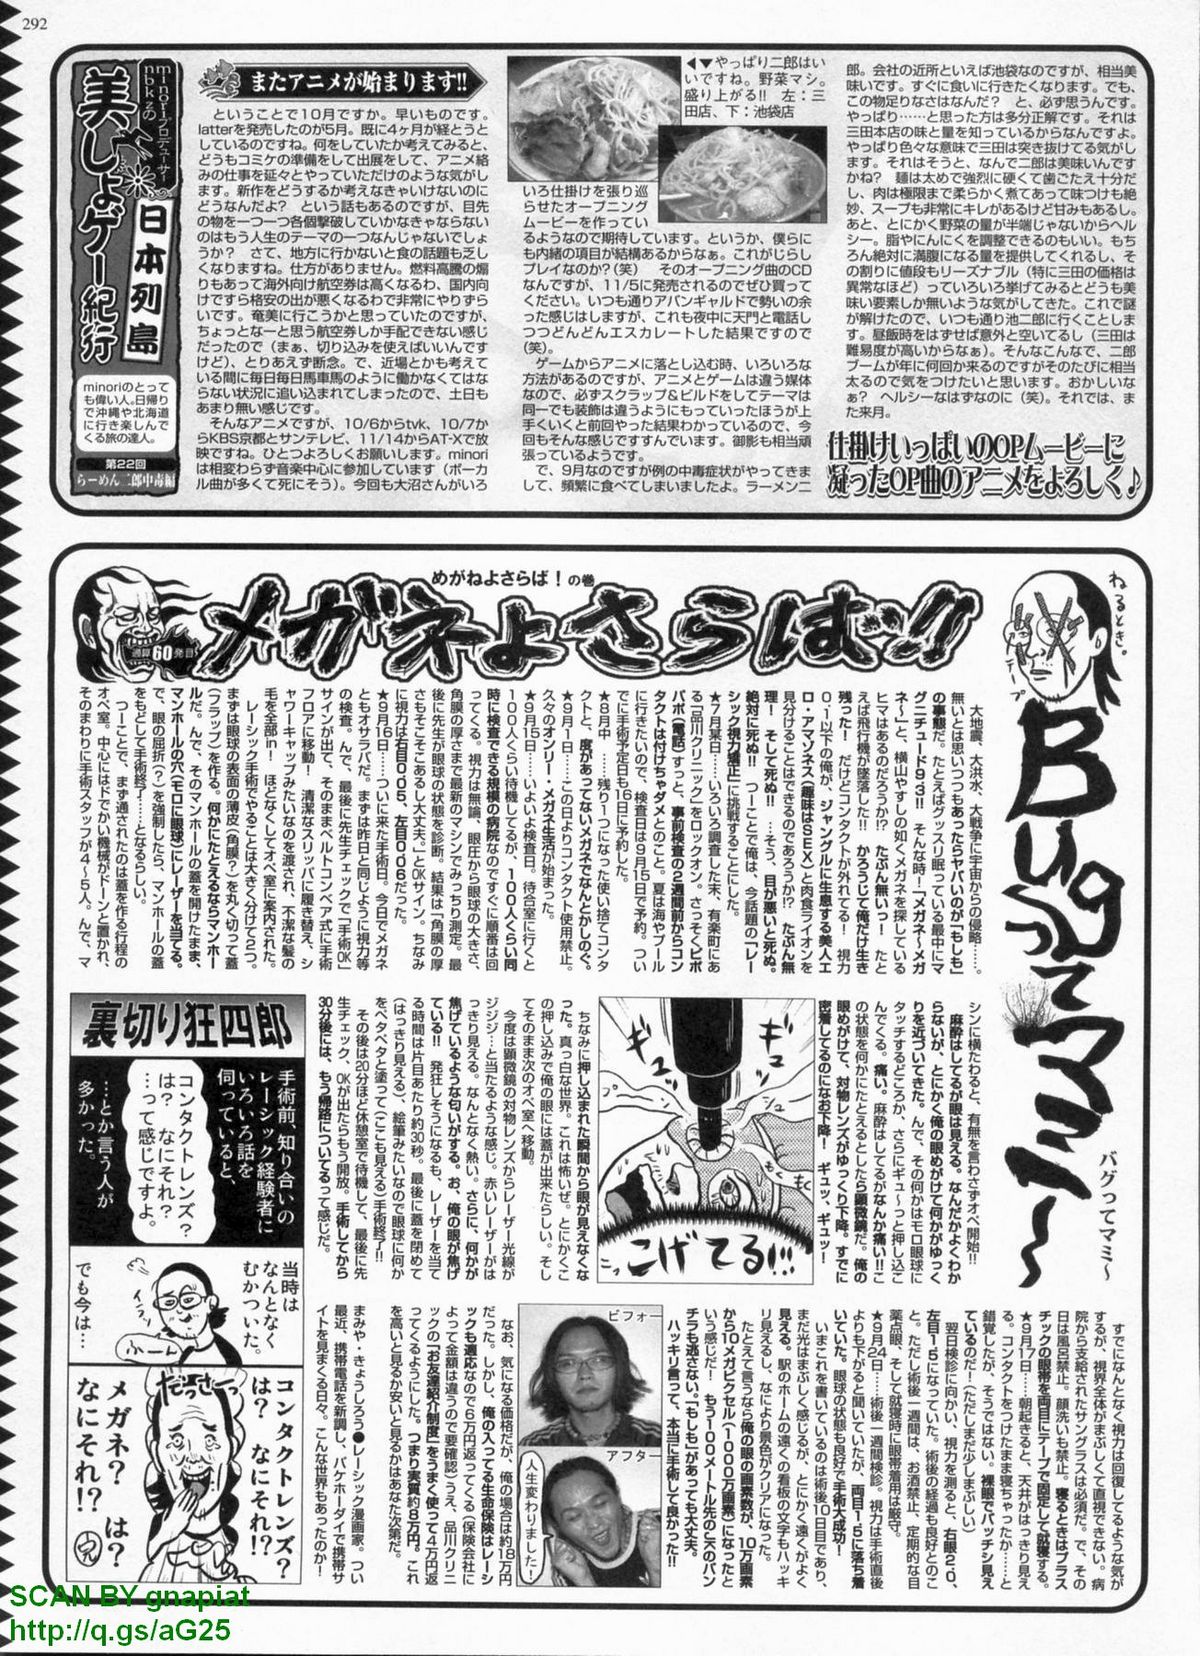 292
minoriプロデューサー
nbkzの
美しょゲー紀行
日本列島
minoriのとって
も偉い人。日帰り
で沖縄や北海道
に行き楽しんで
くる旅の達人。
第22回
らーめん二郎中毒編
またアニメが始まります!!
ということで10月ですか。早いものです。
latterを発売したのが5月。既に4ヶ月が経とうと
しているのですね。何をしていたか考えてみると、
どうもコミケの準備をして出展をして、アニメ絡
みの仕事を延々とやっていただけのような気がし
ます。新作をどうするか考えなきゃいけないのに
どうなんだよ？　という話もあるのですが、目先
の物を一つ一つ各個撃破していかなきゃならない
のはもう人生のテーマの一つなんじゃないでしょ
うか？　さて、地方に行かないと食の話題も乏し
くなりますね。仕方がありません。燃料高騰の煽
りもあって海外向け航空券は高くなるわ、国内向
けですら格安の出が悪くなるわで非常にやりずら
いです。奄美に行こうかと思っていたのですが、
ちょっとなーと思う航空券しか手配できない感じ
だったので（まぁ、切り込みを使えばいいんです
けど）、とりあえず断念。で、近場とかも考えて
いる間に毎日毎日馬車馬のように働かなくてはな
らない状況に追い込まれてしまったので、土日も
あまり無い感じです。
そんなアニメですが、10/6からtvk、10/7か
らKBS京都とサンテレビ、11/14からAT-Xで放
映ですね。ひとつよろしくお願いします。minori
は相変わらず音楽中心に参加しています（ボーカ
ル曲が多くて死にそう）。今回も大沼さんがいろ
◀▼やっぱり二郎はい
いですね。野菜マシ。
盛り上がる!!　左：三
田店、下：池袋店
いろ仕掛けを張り巡
らせたオープニング
ムービーを作ってい
るようなので期待しています。というか、僕らに
も内緒の項目が結構あるからなぁ。これがじらし
プレイなのか？（笑）　そのオープニング曲のCD
なんですが、11/5に発売されるのでぜひ買って
ください。いつも通りアバンギャルドで勢いの余
った感じはしますが、これも夜中に天門と電話し
つつどんどんエスカレートした結果ですので
（笑）。
ゲームからアニメに落とし込む時、いろいろな
方法があるのですが、アニメとゲームは違う媒体
なので、必ずスクラップ&ビルドをしてテーマは
同一でも装飾は違うようにもっていったほうが上
手くいくと前回やった結果わかっているので、今
回もそんな感じですすんでいます。御影も相当頑
張っているようです。
で、9月なのですが例の中毒症状がやってきま
して、頻繁に食べてしまいましたよ。ラーメン二
郎。会社の近所といえば池袋なのですが、相当美
味いです。すぐに食いに行きたくなります。でも、
この物足りなさはなんだ？　と、必ず思うんです。
やっぱり……と思った方は多分正解です。それは
三田本店の味と量を知っているからなんですよ。
やっぱり色々な意味で三田は突き抜けてる気がし
ます。それはそうと、なんで二郎は美味いんです
かね？　麺は太めで強烈に硬くて歯ごたえ十分だ
し、肉は極限まで柔らかく煮てあって味つけも絶
妙、スープも非常にキレがあるけど甘みもあるし。
あと、とにかく野菜の量が半端じゃないからヘル
シー。脂やにんにくを調整できるのもいい。もち
ろん絶対に満腹になる量を提供してくれるし、そ
の割りに値段もリーズナブル（特に三田の価格は
異常なほど）っていろいろ挙げてみるとどうも美
味い要素しか無いような気がしてきた。これで謎
が解けたので、いつも通り池二郎に行くことにしま
す。昼飯時をはずせば意外と空いてるし（三田は
難易度が高いからなぁ）。そんなこんなで、二郎
ブームが年に何回か来るのですがそのたびに相当
太るので気をつけたいと思います。おかしいな
ぁ？　ヘルシーなはずなのに（笑）。それでは、ま
た来月。
仕掛けいっぱいのOPムービーに
凝ったOP曲のアニメをよろしく♪
めがねよさらば！の巻
メガネよさらばッ!!
通算60発目
ねるとき。
テープ
Bugってマミー
バグってマミ〜
大地震、大洪水、大戦争に宇宙からの侵略……。
無いとは思いつつもあったらヤバいのが「もしも」
の事態だ。たとえばグッスリ眠っている最中にマ
グニチュード9・3!!　そんな時！「メガネ〜メガ
ネ〜」と、横山やすしの如くメガネを探している
ヒマはあるのだろうか!?　たぶん無いっ！　たと
えば飛行機が墜落した!!　かろうじて俺だけ生き
残った！　だけどコンタクトが外れてる！　視力
0・1以下の俺が、ジャングルに生息する美人エ
ロ・アマゾネス（趣味はSEX）と肉食ライオンを
見分けることはできるのであろうか!?　たぶん無
理！　そして死ぬ!!　…そう、目が悪いと死ぬ。
絶対に死ぬ!!　つーことで俺は、今話題の「レー
シック視力矯正」に挑戦することにした。
★7月某日…いろいろ調査した末、有楽町にあ
る「品川クリニック」をロックオン。さっそくピポ
パポ（電話）すっと、事前検査の2週間前からコン
タクトは付けちゃダメとのこと。夏は海やプール
でもコンタクト使いたいので、検査日は9月15日で予約。つい
でに手術予定日も16日に予約した。
★8月中…残り1つになった使い捨てコンタ
クトと、度があってないメガネでなんとかしのぐ。
★9月1日…この日よりコンタクト使用禁止。
久々のオンリー・メガネ生活が始まった。
★9月15日…いよいよ検査日。待合室に行くと
100人くらい待機してるが、100人くらい同
時に検査できる規模の病院なのですぐに順番は回
ってくる。視力は無論、眼圧から眼球の大きさ、
角膜の厚さまで最新のマシンでみっちり測定。最
後に先生が眼球の状態を診断。結果は「角膜の厚
さもそこそこあるし大丈夫。」とOKサイン。ちなみ
に視力は右目0.05、左目0.06だった。
★9月16日…ついに来た手術日。今日でメガネ
ともオサラバだ。まずは昨日と同じように視力等
の検査。んで、最後に先生チェックで「手術OK」
サインが出て、そのままベルトコンベア式に手術
フロアに移動！　清潔なスリッパに履き替え、シ
ャワーキャップみたいなのを渡され、不潔な髪の
毛を全部in！　ほどなくしてオペ室に案内された。
レーシック手術でやることは大きく分けて2つ。
まずは眼球の表面の薄皮（角膜？）を丸く切って蓋
（フラップ）を作る。何かにたとえるならマンホー
ルだ。んで、そのマンホールの蓋を開けたまま、
マンホールの穴（モロに眼球）にレーザーを当てる。
で、眼の屈折（？）を強制したら、マンホールの蓋
をもどして手術終了……となるらしい。
つーことで、まず通されたのは蓋を作る行程の
オペ室。中心にはドでかい機械がドーンと置かれ、
そのまわりに手術スタッフが4〜5人。んで、マ
シンに横たわると、有無を言わさずオペ開始!!
麻酔はしてるが眼は見える。なんだかよくわか
らないが、とにかく俺の眼めがけて何かがゆっく
りを近づいてきた。んで、その何かはモロ眼球に
タッチするどころか、さらにギュ〜っと押し込
んでくる。痛い。麻酔はしてるがなんか痛い!!こ
の状態を何かにたとえるとしたら顕微鏡だ。俺の
眼めがけて、対物レンズがゆっくり下降。すでに
密着してるのになお下降！　ギュッ、ギュッー
ギュギギ
こげてる!!!
ちなみに押し込まれた瞬間から眼が見えなくな
った。真っ白な世界。これは怖いぜ。とにかくこ
の押し込みで俺の眼には蓋が出来たらしい。そし
てそのまま次のオペ室へ移動。
今度は顕微鏡の対物レンズからレーザー光線が
ジジジ…と当たるような感じ。赤いレーザーがは
っきり見える。なんとなく熱い。さらに、何かが
焦げているような匂いがする。お、俺の眼が焦げ
ている!!　発狂しそうになるも、レーザーを当て
る時間は片目あたり約30秒。最後に蓋を閉めて
（はっきり見える）、絵筆みたいなので眼球に何か
をペタペタと塗って（ここも見える）手術終了!!
その後は20分ほど休憩室で待機して、最後に先
生チェック、OKが出たらもう開放。手術してから
30分後には、もう帰路についてるって感じだ。
すでになんとなく視力は回復してるような気が
するが、視界全体がまぶしくて直視できない。病
院から支給されたサングラスは必須だ。で、その
日は風呂禁止。顔洗いも禁止。寝るときはプラス
チックの眼帯を両目にテープで固定して就寝する。
★9月17日…朝起きると、天井がはっきり見え
る。コンタクトをつけたまま寝ちゃったか…と
錯覚したが、そうではない。裸眼でバッチシ見え
ているのだ！（ただしまだ少しまぶしい）
翌日検診に向かい、視力を測ると、右眼2・0、
左目1・5になっていた。術後の経過も良好とのこ
と。ただし術後一週間は、お酒禁止、定期的な目
薬点眼、そして就寝時に眼帯着用は厳守。
★9月24日…術後一週間検診。視力は手術直後
よりも下がると聞いていたが、両目1・5に落ち着
いていた。眼球の状態も良好で手術大成功！
いまこれを書いているのは術後10日目であり、
まだ光はまぶしく感じるが、とにかく遠くがよく
見える。駅のホームの遠くの看板の文字もハッキ
リ見えるし、なにより景色がクリアになった。
たとえて言うなら俺の眼の画素数が、10万画素
から10メガピクセル（1000万画素）になったと
いう感じだ！　もう100メートル先のJKのパン
チラも逃さない。「もしも」があっても大丈夫。
ハッキリ言って、本当に手術して良かった!!
ビフォー
アフター
人生変わりました！
なお、気になる価格だが、俺の場合は約18万円
だった。しかし、俺の入ってる生命保険はレーシ
ックも適応なので6万円返ってくる（保険会社に
よって金額は違うので要確認）うえ、品川クリニ
ックの「お友達紹介制度」をうまく使って4万円返
ってくるようにした。つまり実質約8万円。これ
を高いと見るか安いと見るかはあなた次第だ。
まみや・きょうしろう●レーシック漫画家。つい
最近、携帯電話を新調し、パケホーダイで携帯サ
イトを見まくる日々。こんな世界もあったのか！
裏切り狂四郎
手術前、知り合いの
レーシック経験者に
いろいろ話を
伺っていると、
コンタクトレンズ？
は？　なにそれ？
…って感じですよ。
…とか言う人が
多かった。
当時は
なんとなく
むかついた。
イラッ
ふーん
でも今は…
だっさーっ
コンタクトレンズ？
は？　なにそれ!?
メガネ？　は？
なにそれ!?
完
SCAN BY gnapiat
http://q.gs/aG25